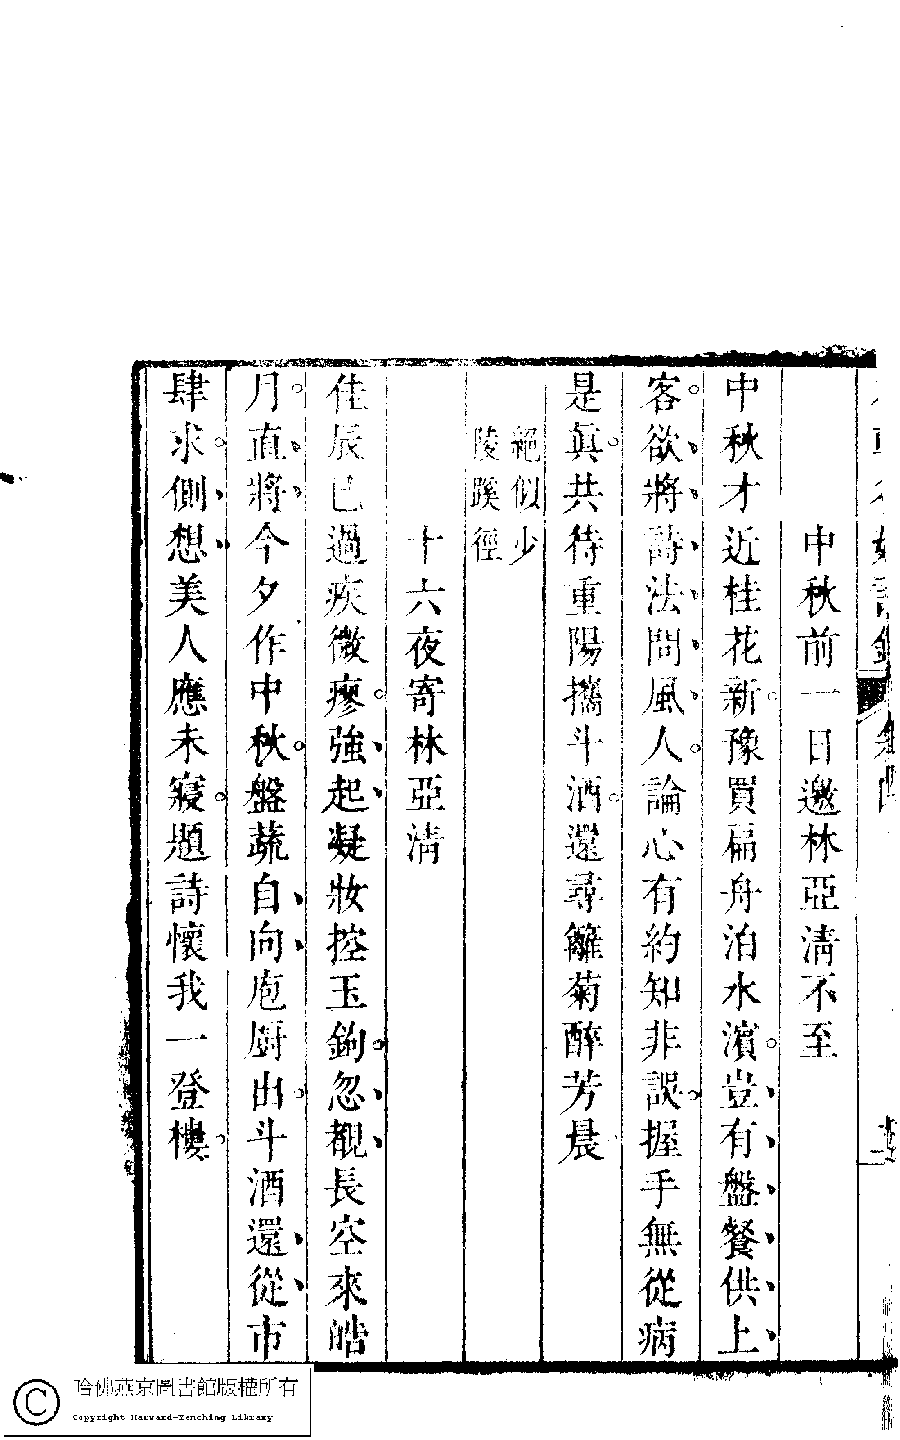 中秋前一日邀林亞清不至
中秋才近桂花新。豫買扁舟泊水濱。豈有盤餐供上
客。欲將詩法問風人。論心有約知非誤。握手無從病
是眞。共待重陽攜斗酒。還尋籬菊醉芳晨。
絕似少
陵蹊徑
十六夜寄林亞清
佳辰已過疾微瘳。強起凝妝控玉鉤。忽覩長空來皓
月。直將今夕作中秋。盤蔬自向庖厨出。斗酒還從市
肆求。側想美人應未寢。題詩懷我一登樓。
哈佛燕京圖書館版權所有
Copyright Harvard-Yenching Library